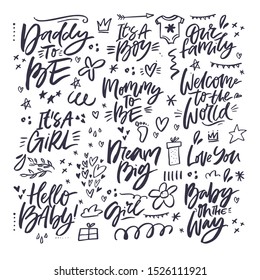 Daddy
to
BE
It's A
Boy
Our
Family
Mommy
to BE
Welcome
to the
World
It's A
Girl
Dream
Big
Love You
Hello
Baby!
Girl
Baby
on the
Way
shutterstock.com · 1526111921